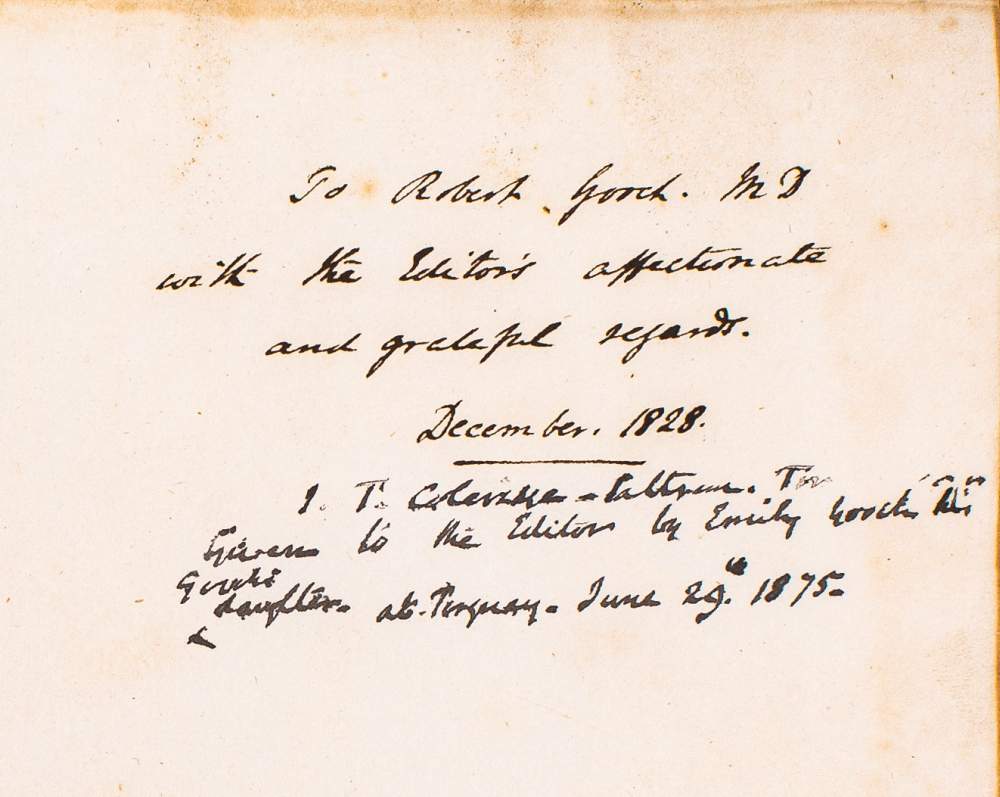 To Robert Gooch. M D
with the Editor's affectionate
and grateful regards.
December. 1828.
J. T. Coleridge
Given to the Editor by Emily Gooch his
Gooch's
daughter. at Torquay. June 29.th 1875.